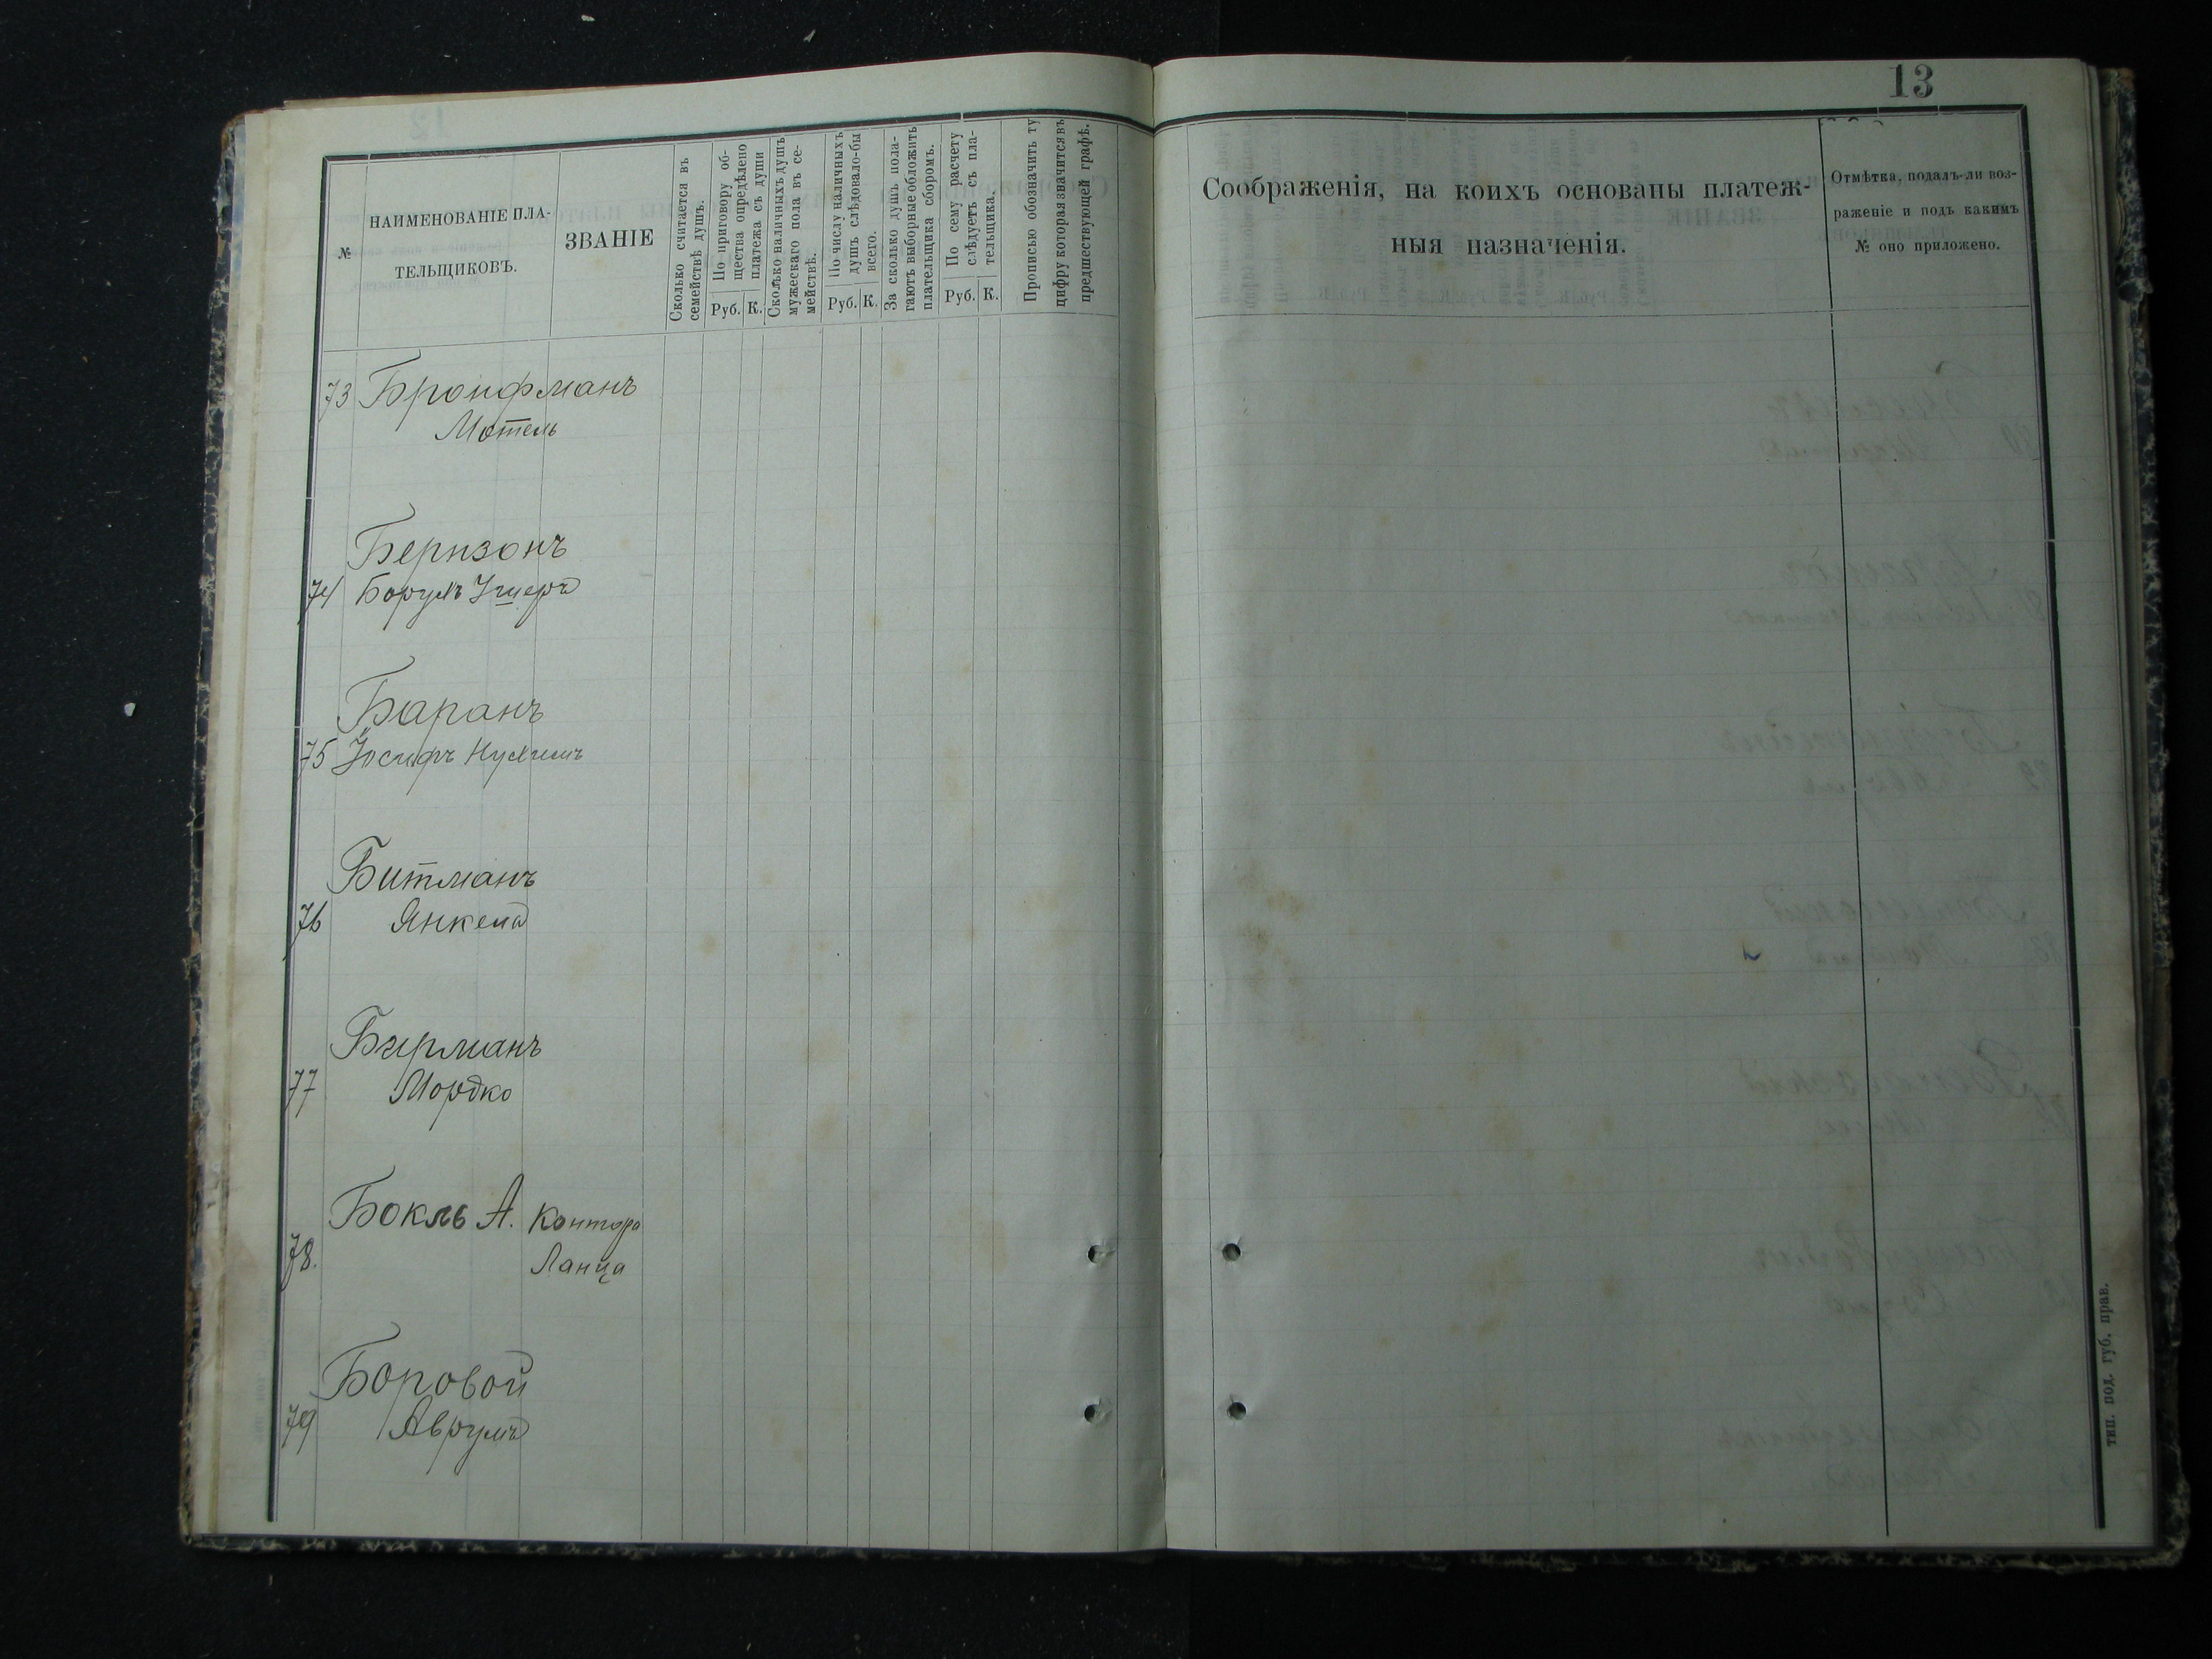 13
№
НАИМЕНОВАНІЕ ПЛА-
ТЕЛЬЩИКОВЪ.
ЗВАНІЕ
Сколько считается въ
семействѣ душъ.
По приговору об-
щества опредѣлено
платежа съ души
Руб. К.
Сколько наличныхъ душъ
мужескаго пола въ се-
мействѣ.
По числу наличныхъ
душъ слѣдовало-бы
всего.
Руб. К.
За сколько душъ пола-
гаютъ выборные обложить
плательщика сборомъ.
По сему расчету
слѣдуетъ съ пла-
тельщика.
Руб. К.
Прописью обозначить ту
цифру которая значится въ
предшествующей графѣ.
Соображенія, на коихъ основаны платеж-
ныя назначенія.
Отмѣтка, подалъ-ли воз-
раженіе и подъ какимъ
№ оно приложено.
73 Бронфманъ
Мотель
Беризонъ
74 Борухъ
Баранъ
75 Іосифъ Нухимъ
Битманъ
76 Янкель
Бирманъ
77 Мордко
Бокль А. Контора
78. Ланца
Боровой
79 Аврумъ
тип. под. губ. прав.